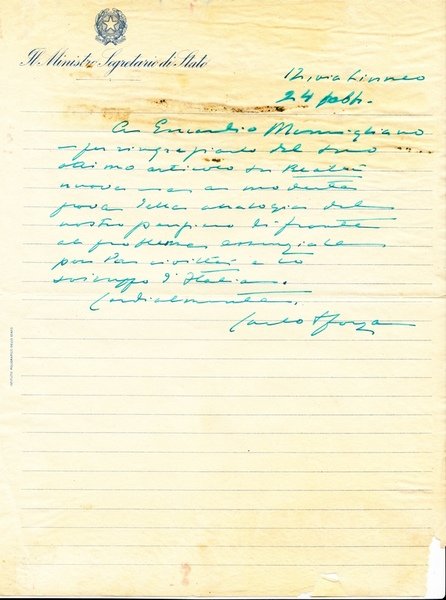 Il Ministro Segretario di Stato
12, via Linneo
24 febb.
A Eucardio Momigliano
– per ringraziarlo del suo
ottimo articolo su Realtà
nuova – a
prova della analogia del
nostro pensiero di fronte
al problema essenziale
per la civiltà e lo
sviluppo d'Italia.
Cordialmente.
Carlo Sforza